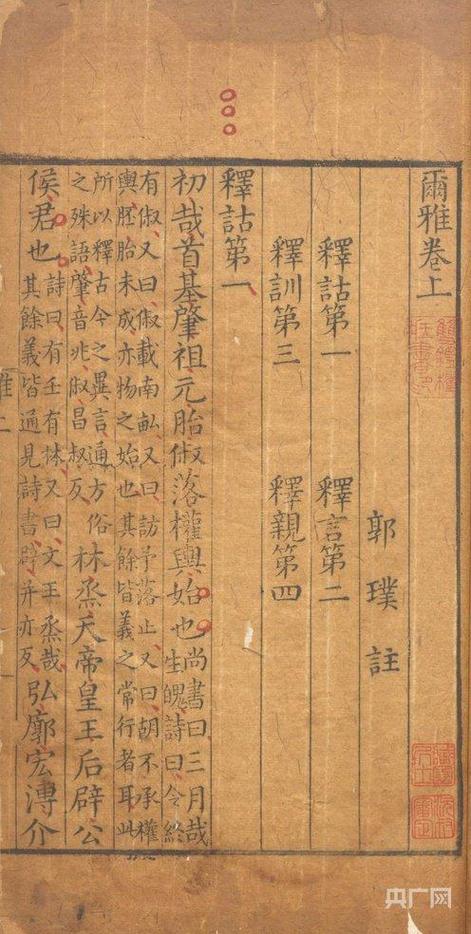 爾雅卷上
郭璞註
釋詁第一 釋言第二
釋訓第三 釋親第四
釋詁第一
初哉首基肇祖元胎俶落權輿始也尚書曰三月哉生魄詩曰令終
有俶又曰俶載南畝又曰訪予落止又曰胡不承權輿胚胎未成亦物之始也其餘皆義之常行者耳此
所以釋古今之異言通方俗之殊語肇音兆俶昌叔反林烝天帝皇王后辟公
侯君也詩曰有壬有林又曰文王烝哉其餘義皆通見詩書辟并亦反弘廓宏溥介
央广网